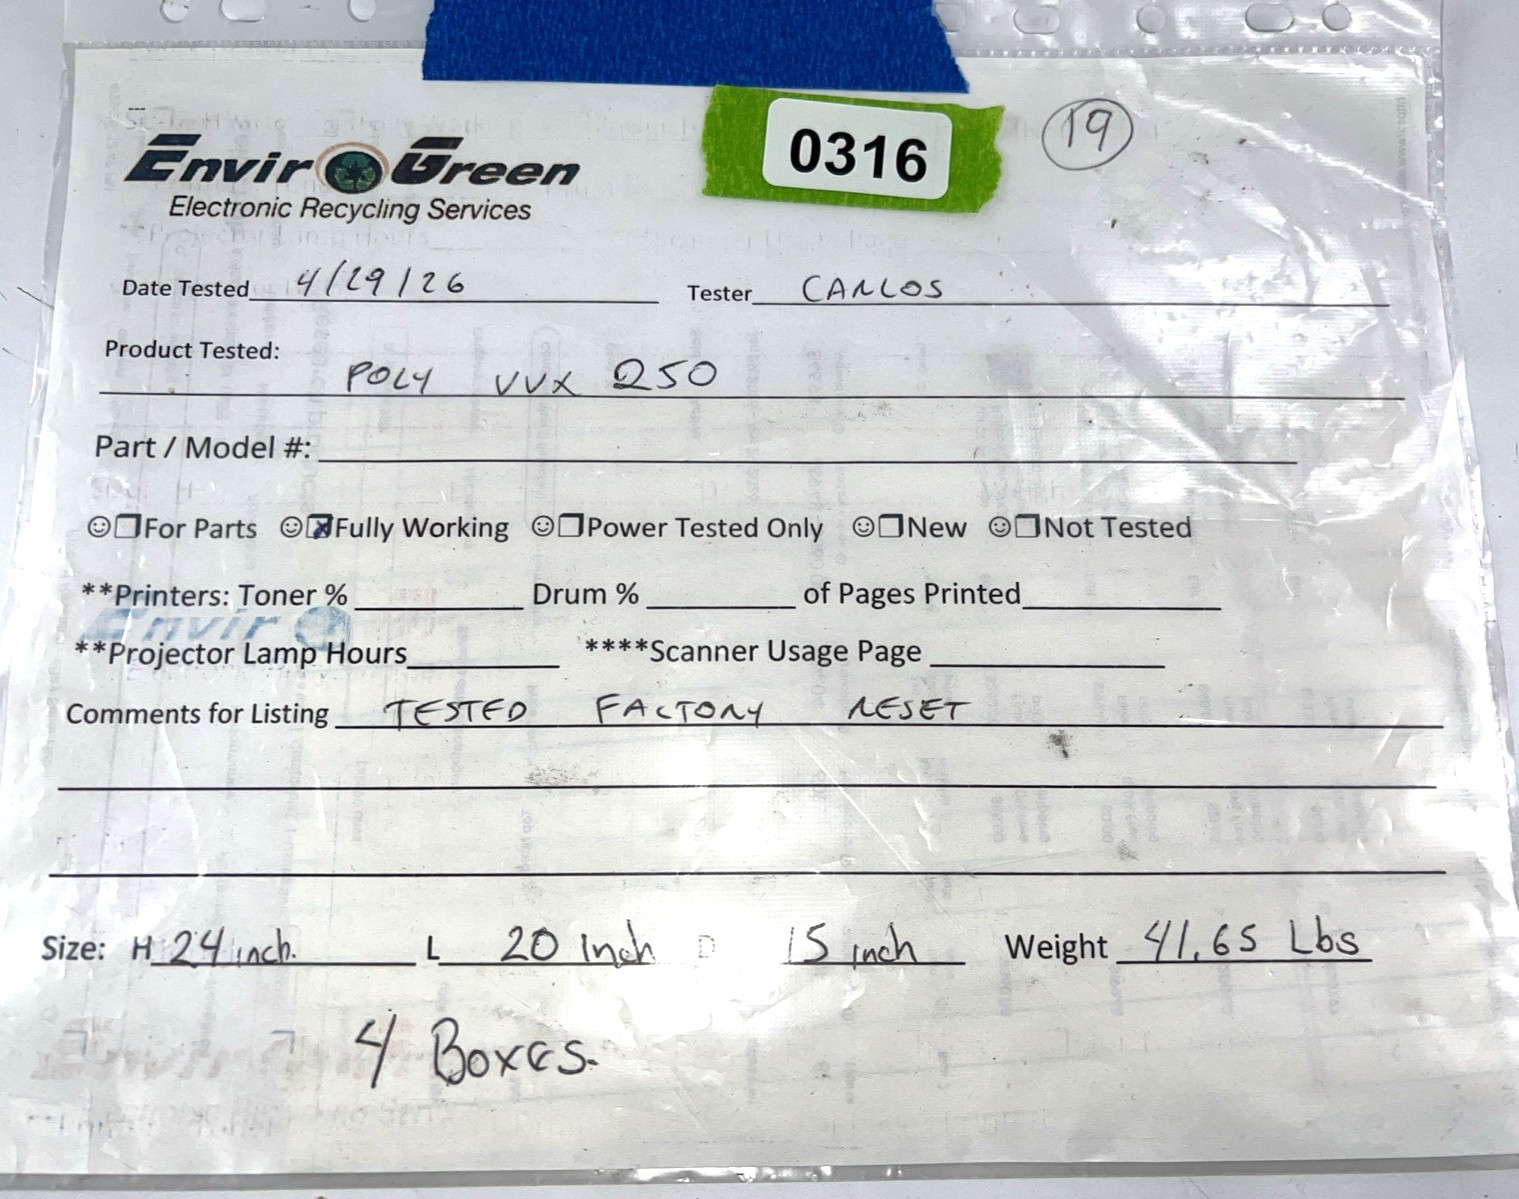 0316
19
Enviro Green
Electronic Recycling Services
Date Tested 4/29/26 Tester CARLOS
Product Tested:
POLY VVX 250
Part / Model #:
☺☐For Parts ☺☒Fully Working ☺☐Power Tested Only ☺☐New ☺☐Not Tested
**Printers: Toner % Drum % of Pages Printed
**Projector Lamp Hours ****Scanner Usage Page
Comments for Listing TESTED FACTORY RESET
Size: H 24 inch. L 20 Inch D 15 inch Weight 41.65 Lbs
4 Boxes.